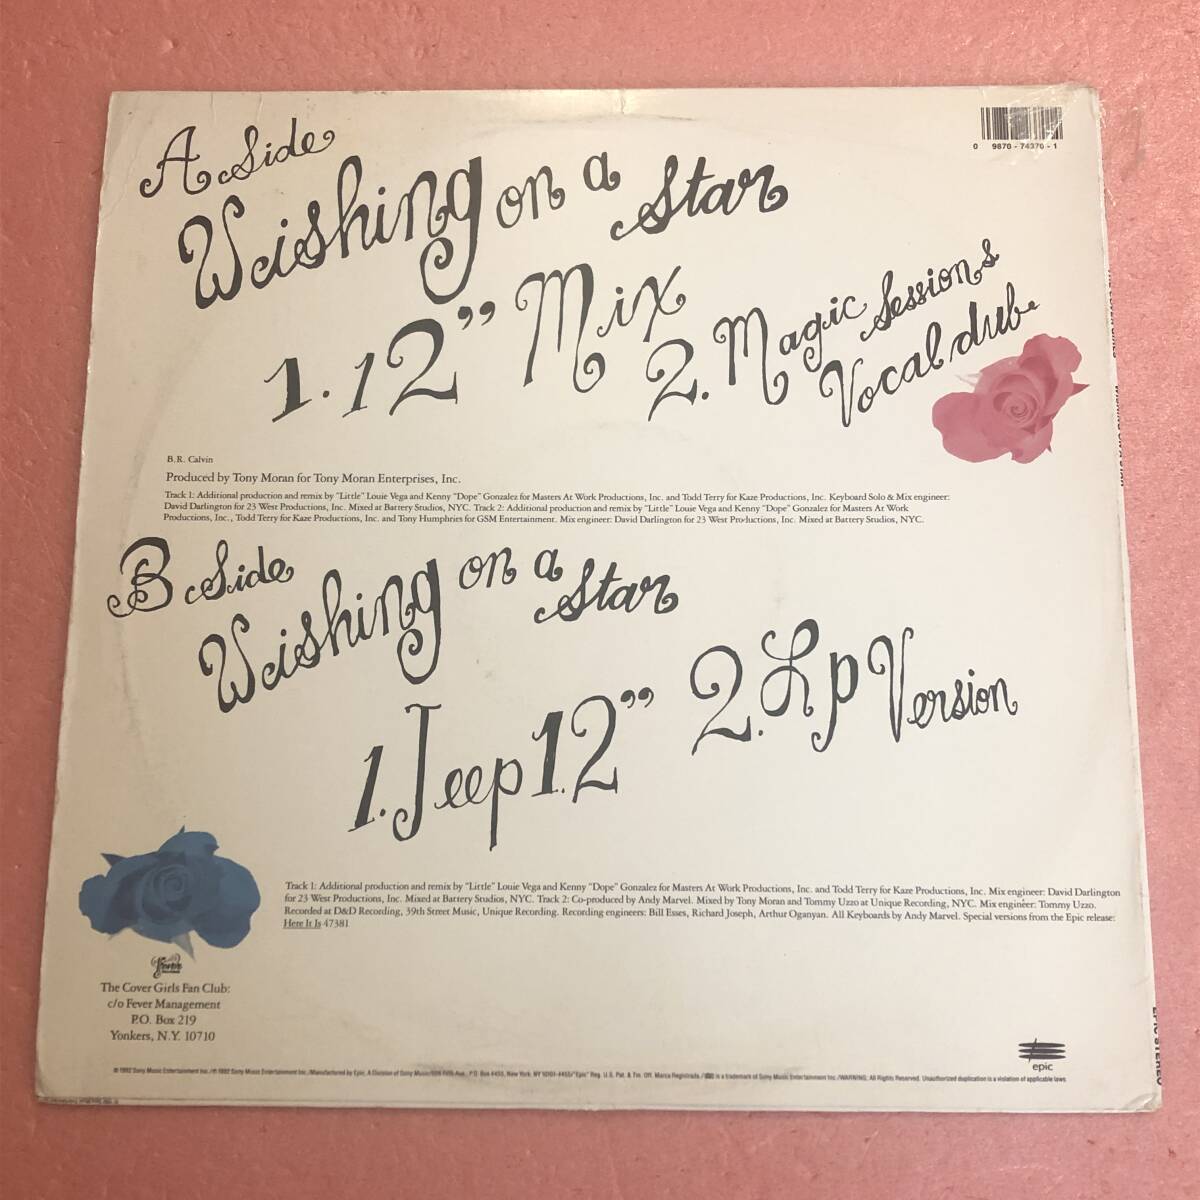 A Side
Wishing on a Star
1. 12" Mix
2. Magic Sessions
Vocal dub
0 9870-74370-1
B.R. Calvin
Produced by Tony Moran for Tony Moran Enterprises, Inc.
Track 1: Additional production and remix by "Little" Louie Vega and Kenny "Dope" Gonzalez for Masters At Work Productions, Inc. and Todd Terry for Kaze Productions, Inc. Keyboard Solo & Mix engineer:
David Darlington for 23 West Productions, Inc. Mixed at Battery Studios, NYC. Track 2: Additional production and remix by "Little" Louie Vega and Kenny "Dope" Gonzalez for Masters At Work
Productions, Inc., Todd Terry for Kaze Productions, Inc. and Tony Humphries for GSM Entertainment. Mix engineer: David Darlington for 23 West Productions, Inc. Mixed at Battery Studios, NYC.
B Side
Wishing on a Star
1. Jeep 12"
2. Lp Version
Track 1: Additional production and remix by "Little" Louie Vega and Kenny "Dope" Gonzalez for Masters At Work Productions, Inc. and Todd Terry for Kaze Productions, Inc. Mix engineer: David Darlington
for 23 West Productions, Inc. Mixed at Battery Studios, NYC. Track 2: Co-produced by Andy Marvel. Mixed by Tony Moran and Tommy Uzzo at Unique Recording, NYC. Mix engineer: Tommy Uzzo.
Recorded at D&D Recording, 39th Street Music, Unique Recording. Recording engineers: Bill Esses, Richard Joseph, Arthur Oganyan. All Keyboards by Andy Marvel. Special versions from the Epic release:
Here It Is 47381
Fever
The Cover Girls Fan Club:
c/o Fever Management
P.O. Box 219
Yonkers, N.Y. 10710
epic
© 1992 Sony Music Entertainment Inc./℗ 1992 Sony Music Entertainment Inc./Manufactured by Epic, A Division of Sony Music/550 Madison Ave., P.O. Box 4450, New York, NY 10101-4450/"Epic" Reg. U.S. Pat. & Tm. Off. Marca Registrada./ is a trademark of Sony Music Entertainment Inc./WARNING: All Rights Reserved. Unauthorized duplication is a violation of applicable laws.
EPIC STEREO